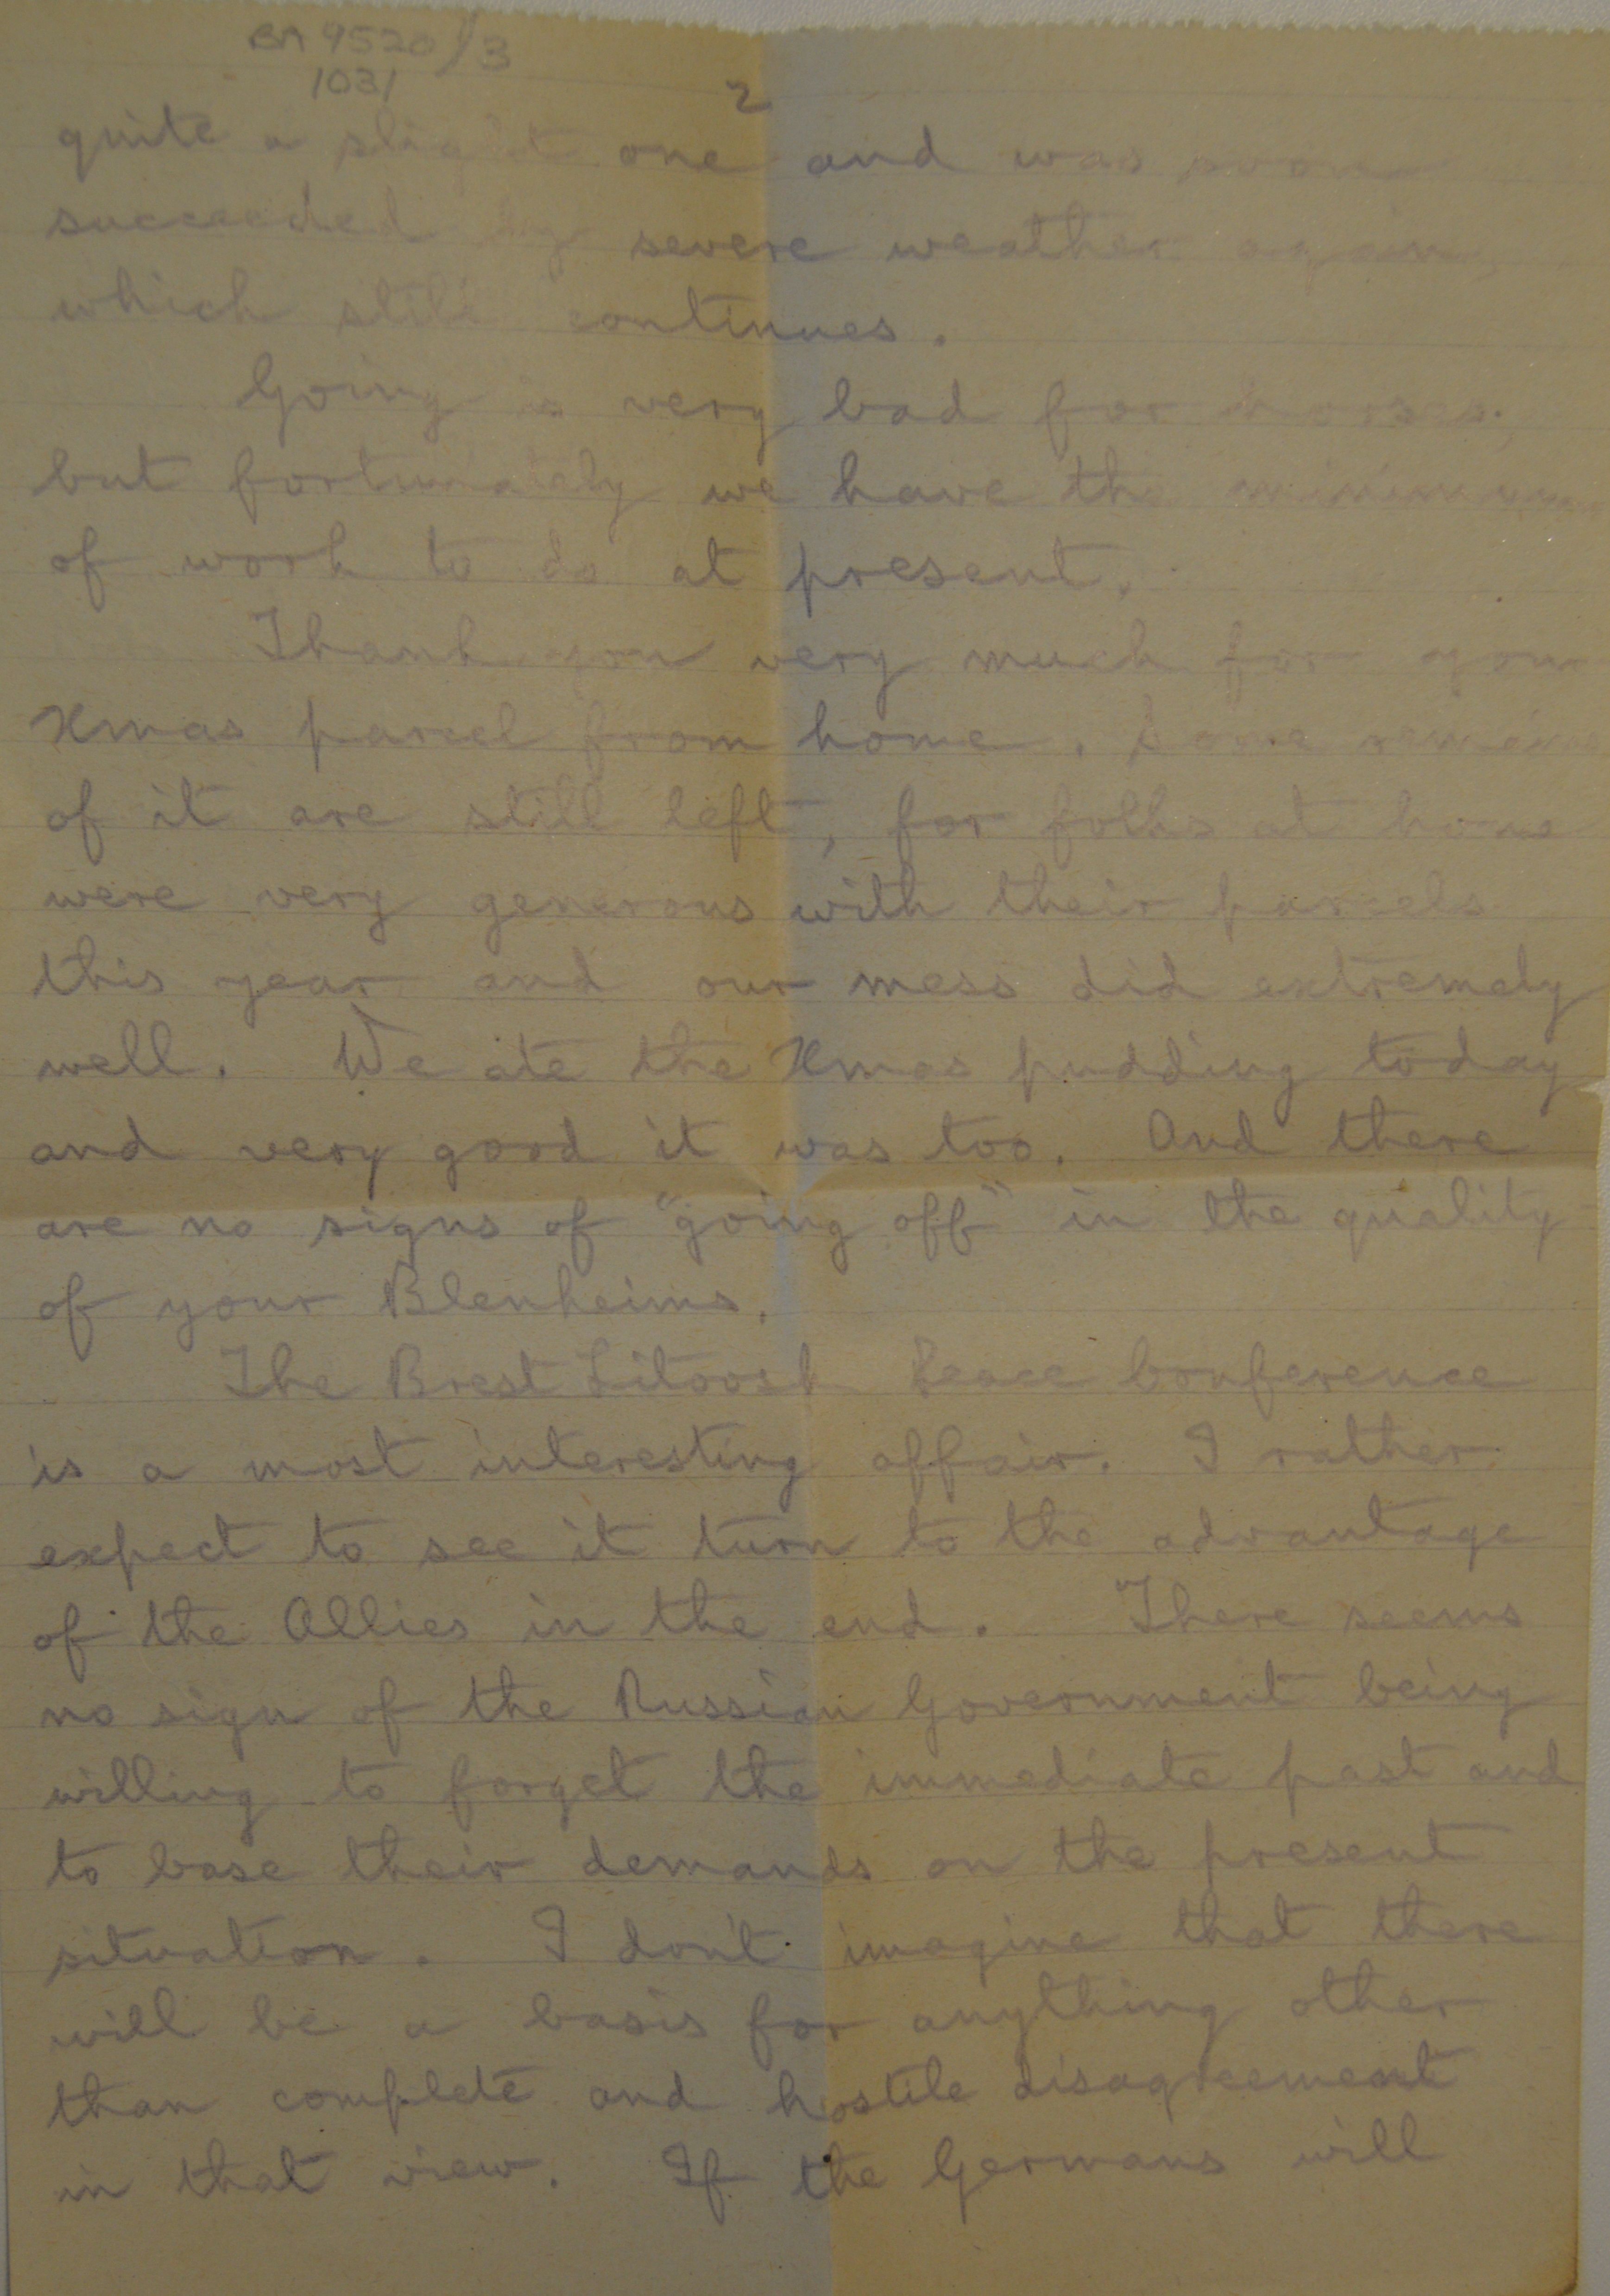 BA 9520/3
1031
2
quite a slight one and was soon
succeeded by severe weather again,
which still continues.
Going is very bad for horses,
but fortunately we have the minimum
of work to do at present.
Thank you very much for your
Xmas parcel from home. Some remains
of it are still left, for folks at home
were very generous with their parcels
this year and our mess did extremely
well. We ate the Xmas pudding today
and very good it was too. And there
are no signs of "going off" in the quality
of your Blenheims.
The Brest Litovsk Peace Conference
is a most interesting affair. I rather
expect to see it turn to the advantage
of the Allies in the end. There seems
no sign of the Russian Government being
willing to forget the immediate past and
to base their demands on the present
situation. I don't imagine that there
will be a basis for anything other
than complete and hostile disagreement
in that view. If the Germans will